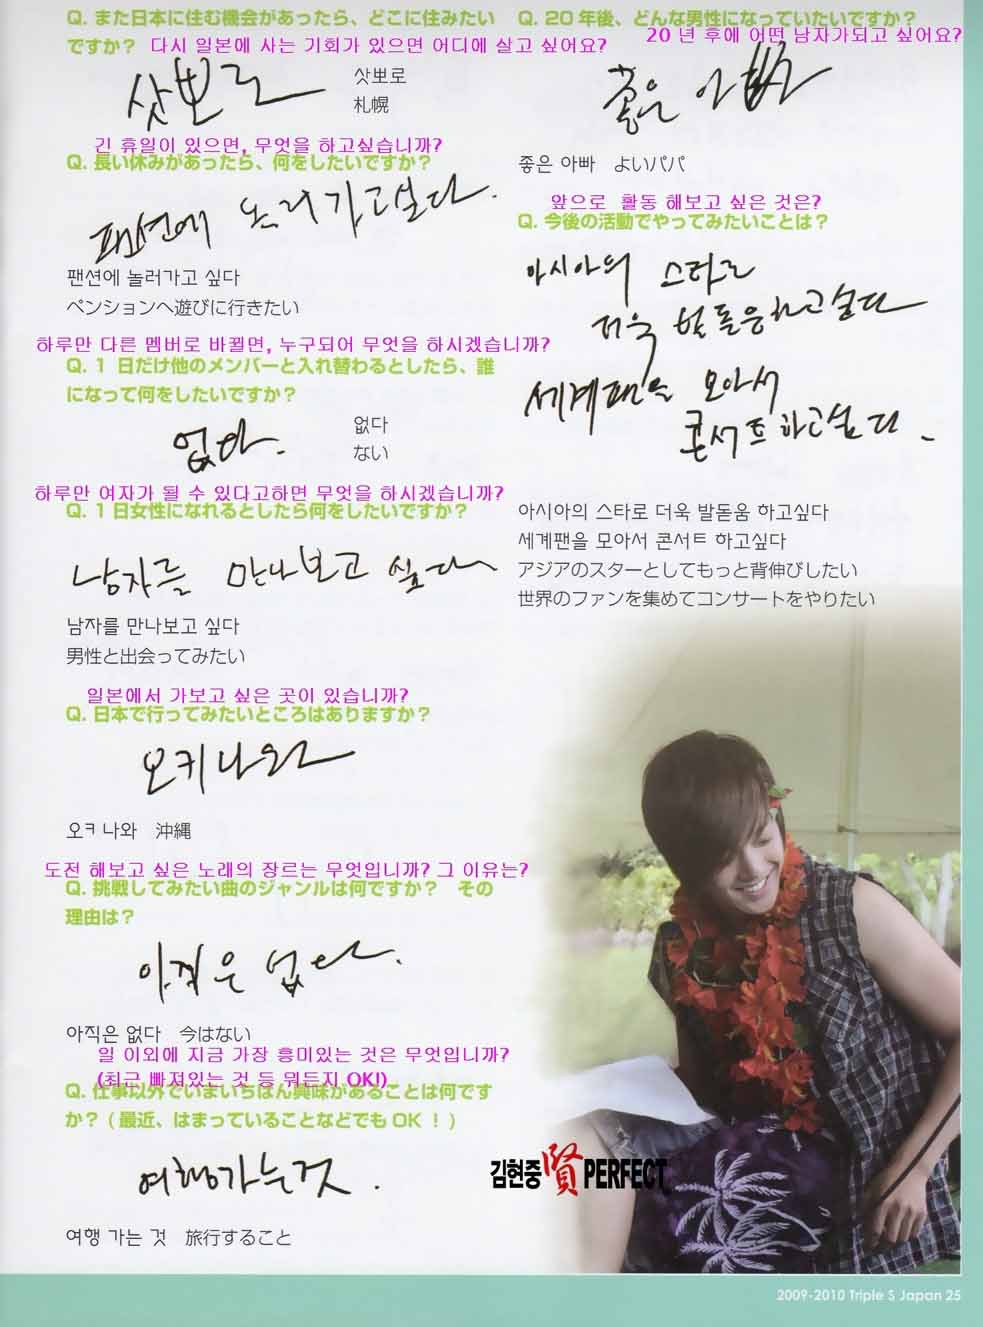 Q. また日本に住む機会があったら、どこに住みたい
ですか？ 다시 일본에 사는 기회가 있으면 어디에 살고 싶어요?
삿뽀로
삿뽀로
札幌
긴 휴일이 있으면, 무엇을 하고싶습니까?
Q. 長い休みがあったら、何をしたいですか？
팬션에 놀러가고싶다.
팬션에 놀러가고 싶다
ペンションへ遊びに行きたい
하루만 다른 멤버로 바뀔면, 누구되어 무엇을 하시겠습니까?
Q. 1 日だけ他のメンバーと入れ替わるとしたら、誰
になって何をしたいですか？
없다.
없다
ない
하루만 여자가 될 수 있다고하면 무엇을 하시겠습니까?
Q. 1日女性になれるとしたら何をしたいですか？
남자를 만나보고 싶다
남자를 만나보고 싶다
男性と出会ってみたい
일본에서 가보고 싶은 곳이 있습니까?
Q. 日本で行ってみたいところはありますか？
오키나와
오키나와 沖縄
도전 해보고 싶은 노래의 장르는 무엇입니까? 그 이유는?
Q. 挑戦してみたい曲のジャンルは何ですか？ その
理由は？
아직은 없다.
아직은 없다 今はない
일 이외에 지금 가장 흥미있는 것은 무엇입니까?
(최근 빠져있는 것 등 뭐든지 OK!)
Q. 仕事以外でいまいちばん興味があることは何です
か？ ( 最近、はまっていることなどでも OK ！)
여행가는것.
여행 가는 것 旅行すること
Q. 20年後、どんな男性になっていたいですか？
20 년 후에 어떤 남자가되고 싶어요?
좋은 아빠
좋은 아빠 よいパパ
앞으로 활동 해보고 싶은 것은?
Q. 今後の活動でやってみたいことは？
아시아의 스타로
더욱 발돋움하고싶다
세계팬을 모아서
콘서트하고싶다.
아시아의 스타로 더욱 발돋움 하고싶다
세계팬을 모아서 콘서트 하고싶다
アジアのスターとしてもっと背伸びしたい
世界のファンを集めてコンサートをやりたい
김현중 賢 PERFECT
2009-2010 Triple S Japan 25